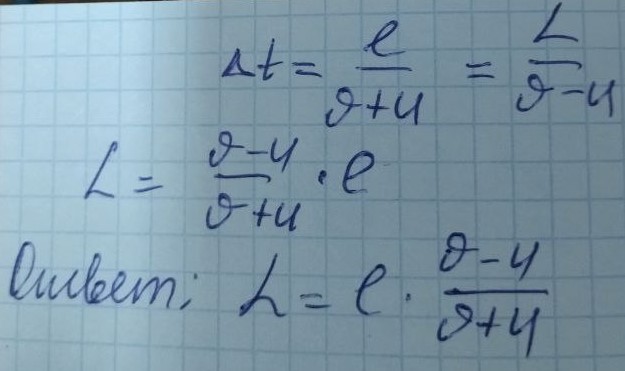 Δt = e/(ϑ+u) = L/(ϑ-u)
L = (ϑ-u)/(ϑ+u) · e
Ответ: L = e · (ϑ-u)/(ϑ+u)